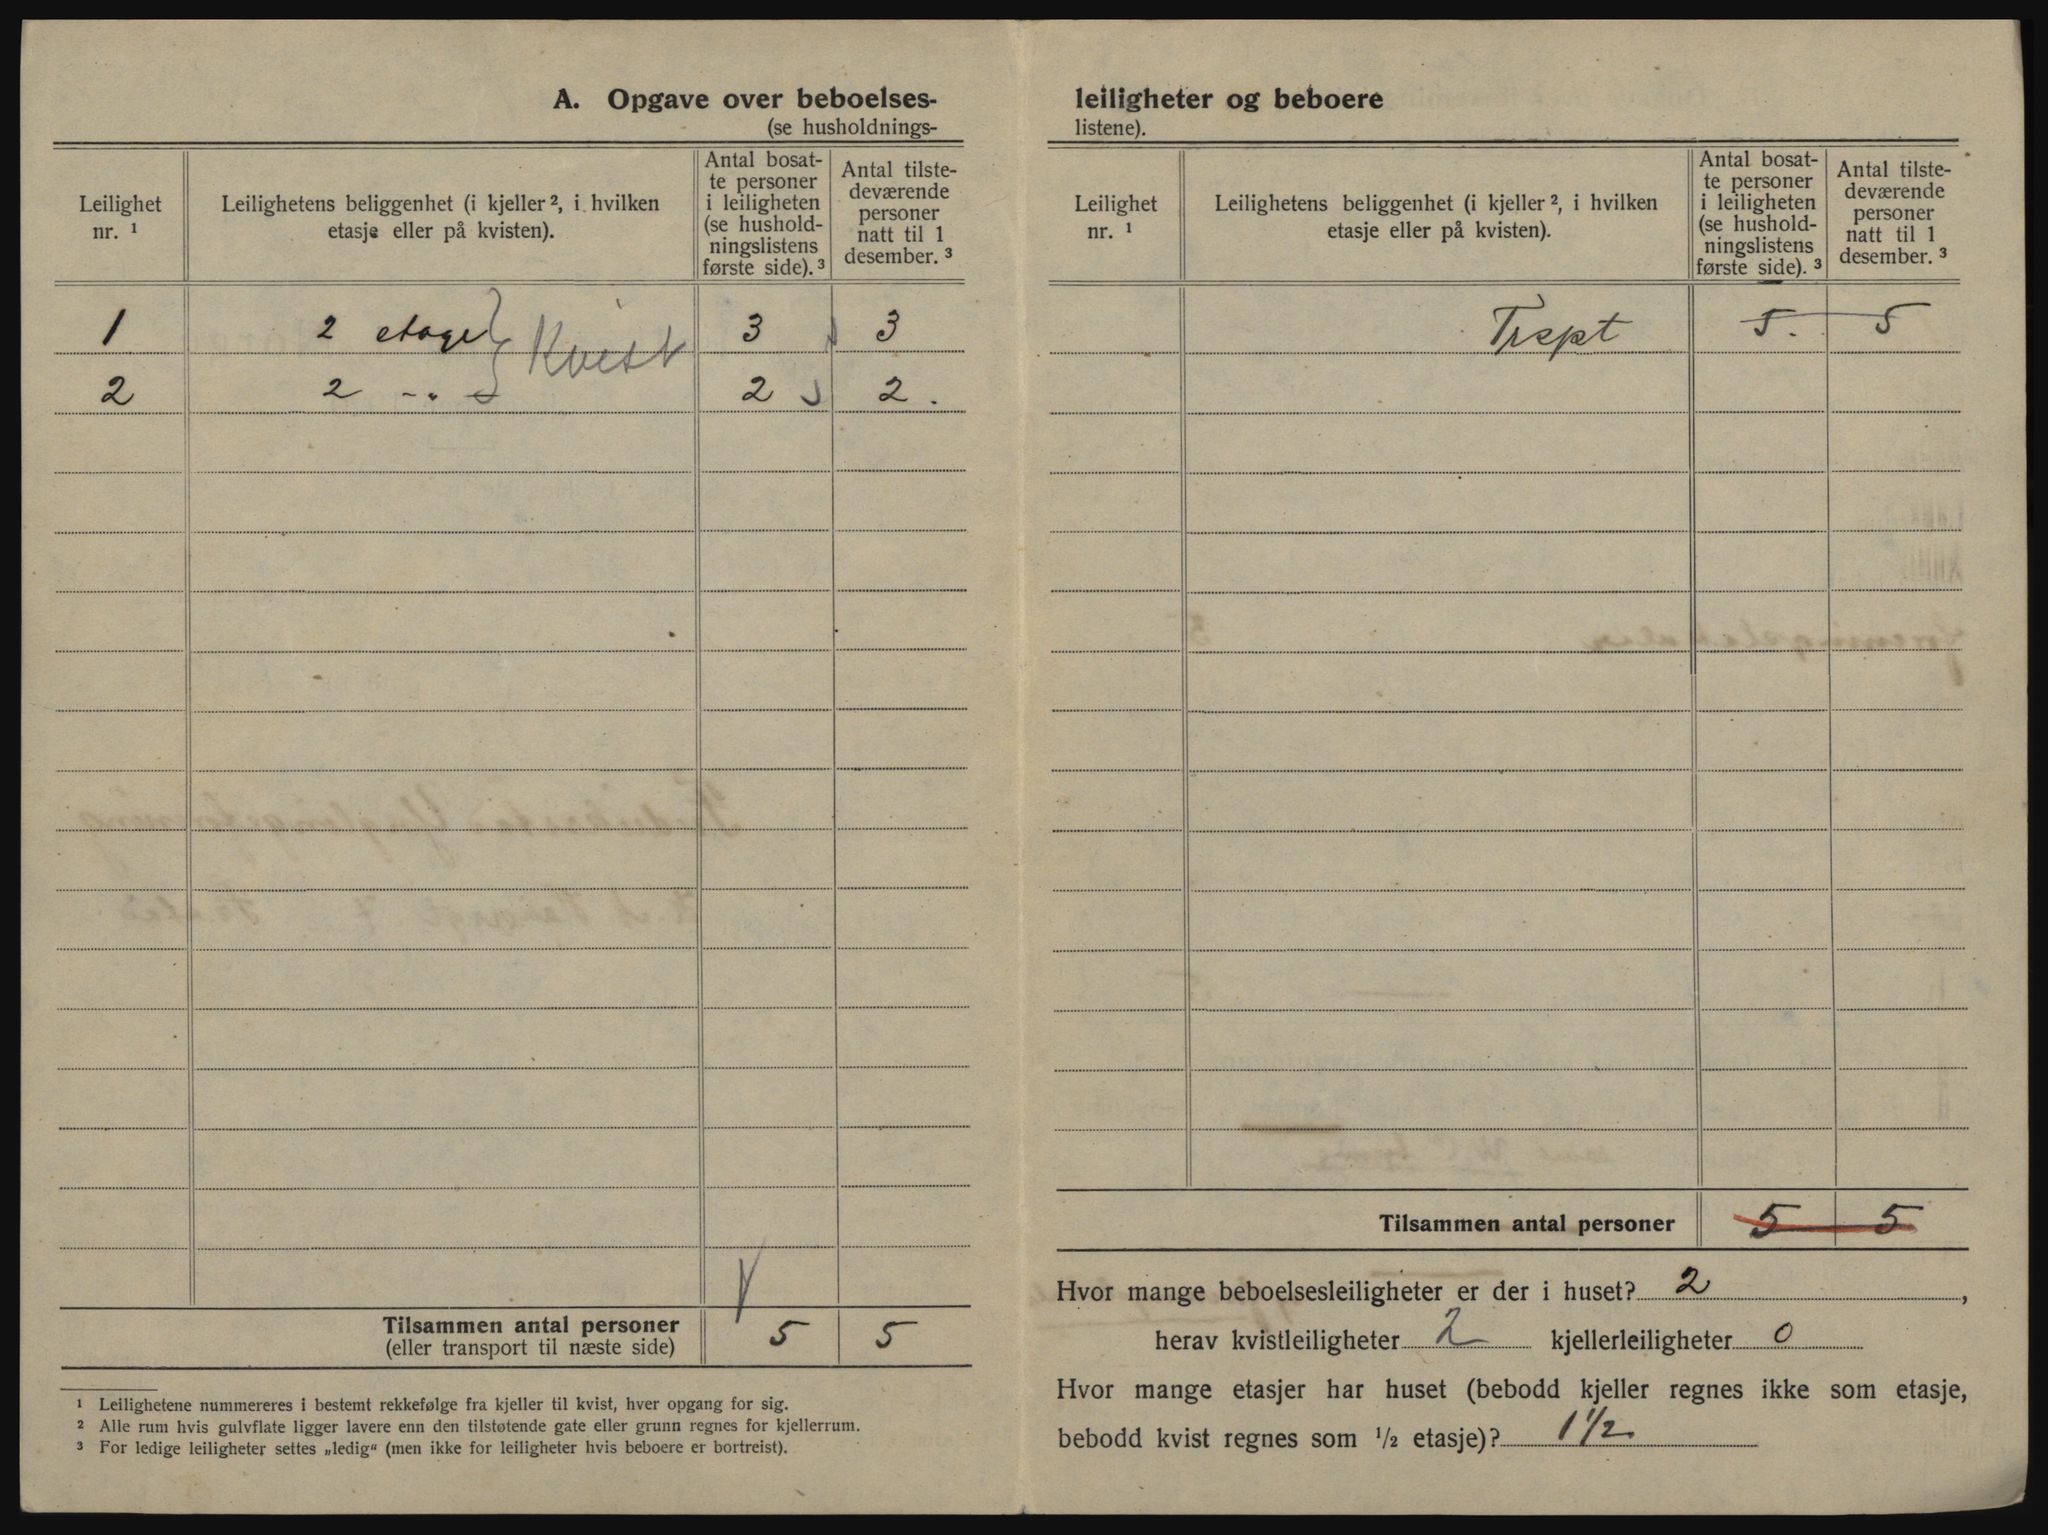 A. Opgave over beboelses-
(se husholdnings-
Leilighet
nr. ¹
Leilighetens beliggenhet (i kjeller ², i hvilken
etasje eller på kvisten).
Antal bosat-
te personer
i leiligheten
(se hushold-
ningslistens
første side). ³
Antal tilste-
deværende
personer
natt til 1
desember. ³
1 2 etage Kvist 3 3
2 2 -"- 2 2.
Tilsammen antal personer 5 5
(eller transport til næste side)
¹ Leilighetene nummereres i bestemt rekkefølge fra kjeller til kvist, hver opgang for sig.
² Alle rum hvis gulvflate ligger lavere enn den tilstøtende gate eller grunn regnes for kjellerrum.
³ For ledige leiligheter settes „ledig“ (men ikke for leiligheter hvis beboere er bortreist).
leiligheter og beboere
listene).
Leilighet
nr. ¹
Leilighetens beliggenhet (i kjeller ², i hvilken
etasje eller på kvisten).
Antal bosat-
te personer
i leiligheten
(se hushold-
ningslistens
første side). ³
Antal tilste-
deværende
personer
natt til 1
desember. ³
Trspt 5. 5
Tilsammen antal personer 5 5
Hvor mange beboelsesleiligheter er der i huset? 2,
herav kvistleiligheter 2 kjellerleiligheter 0
Hvor mange etasjer har huset (bebodd kjeller regnes ikke som etasje,
bebodd kvist regnes som ½ etasje)? 1 ½